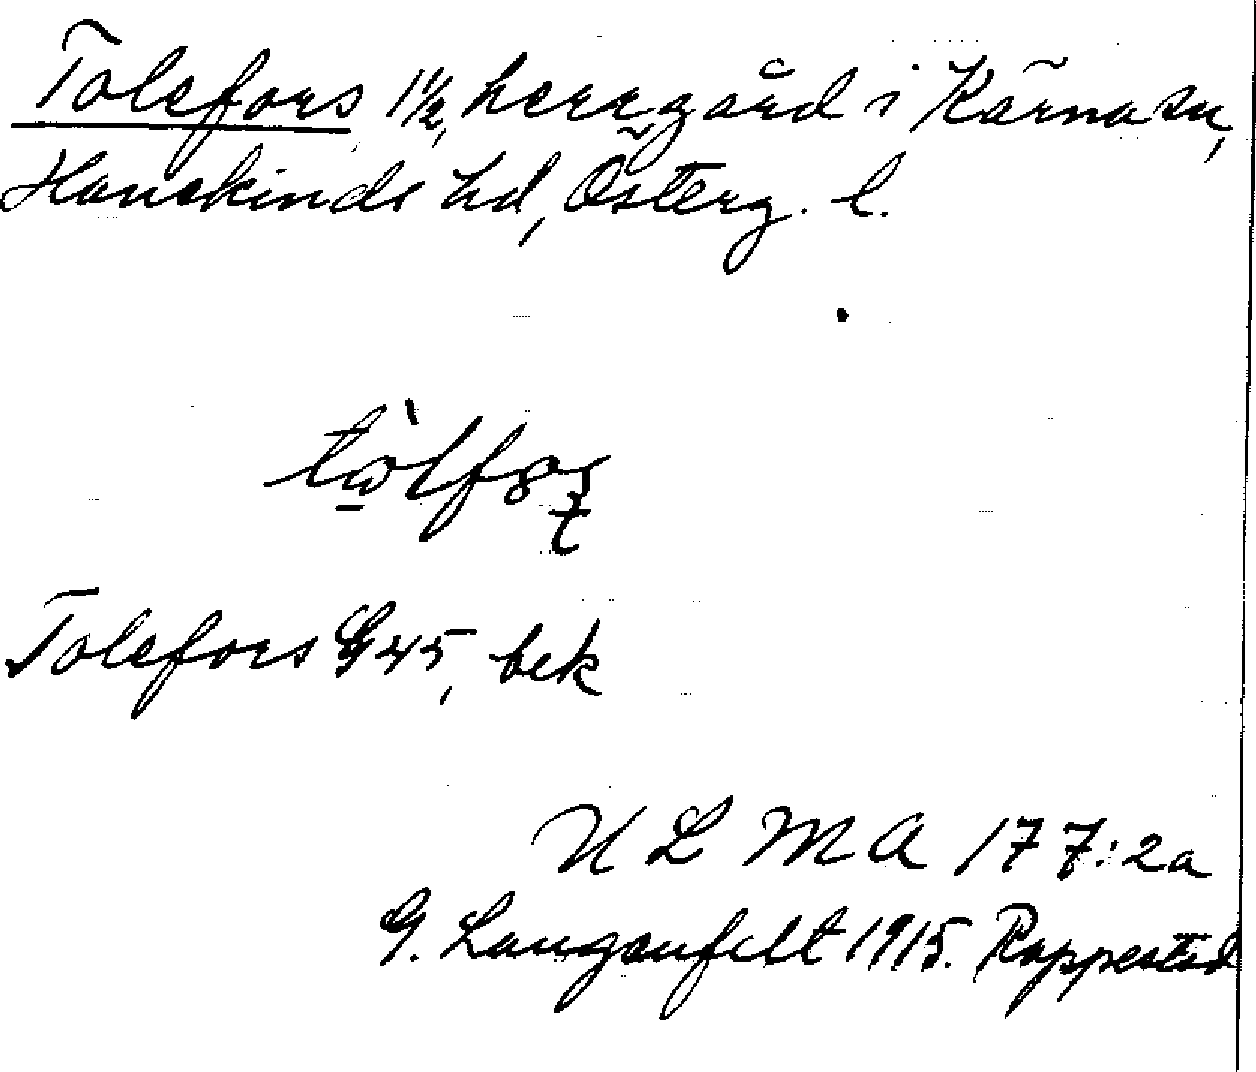 Tolefors 1½, herrgård i Kärna sn,
Hanekinds hd, Österg. l.
Tolefors G 45, bek
ULMA 177:2a
G. Langenfelt 1915. Rappestad